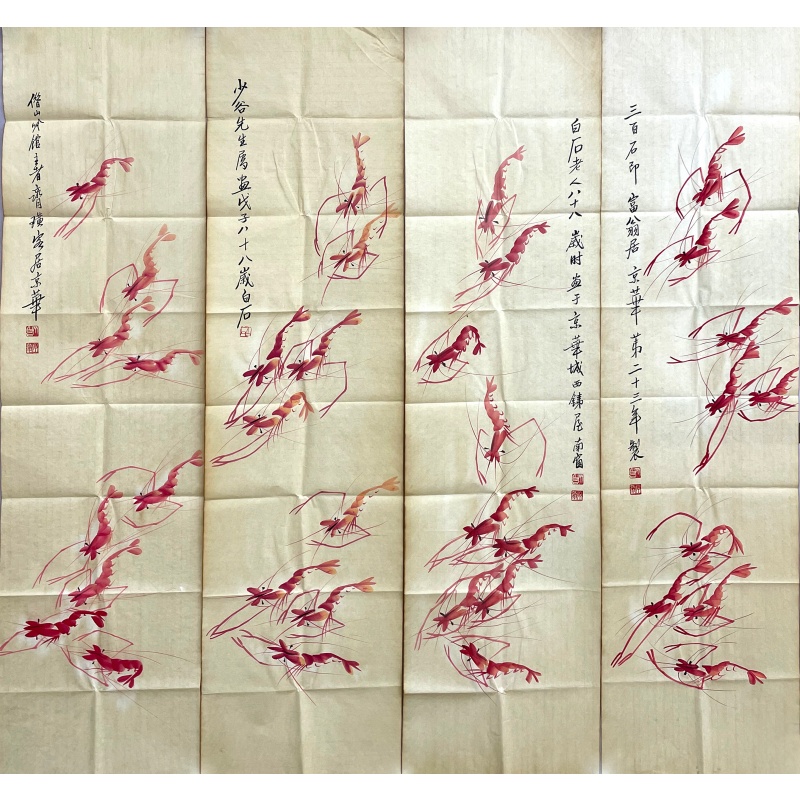 三百石印富翁居京華第二十三年製
白石老人八十八歲时画于京華城西鐵屋南窗
少谷先生属画戊子八十八歲白石
借山吟館主者齊璜客居京華